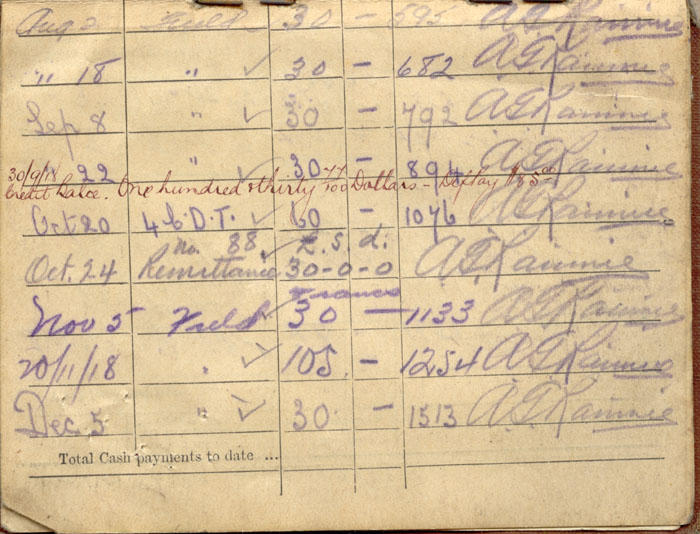 Aug 2 Field 30 — 595 A G Rainnie
" 18 " ✓ 30 — 682 A G Rainnie
Sep 8 " ✓ 30 — 792 A G Rainnie
" 22 " ✓ 30 — 894 A G Rainnie
30/9/18 Credit balce. One hundred & thirty 77/100 Dollars — Def pay $85.00
Oct 20 4 C.D.T. ✓ 60 — 1076 A G Rainnie
no. 88 ✓ £. s. d.
Oct. 24 Remittance 30-0-0 A G Rainnie
Francs
Nov 5 Field ✓ 30 — 1133 A G Rainnie
20/11/18 " ✓ 105. — 1254 A G Rainnie
Dec. 5 " ✓ 30 — 1513 A G Rainnie
Total Cash payments to date ...